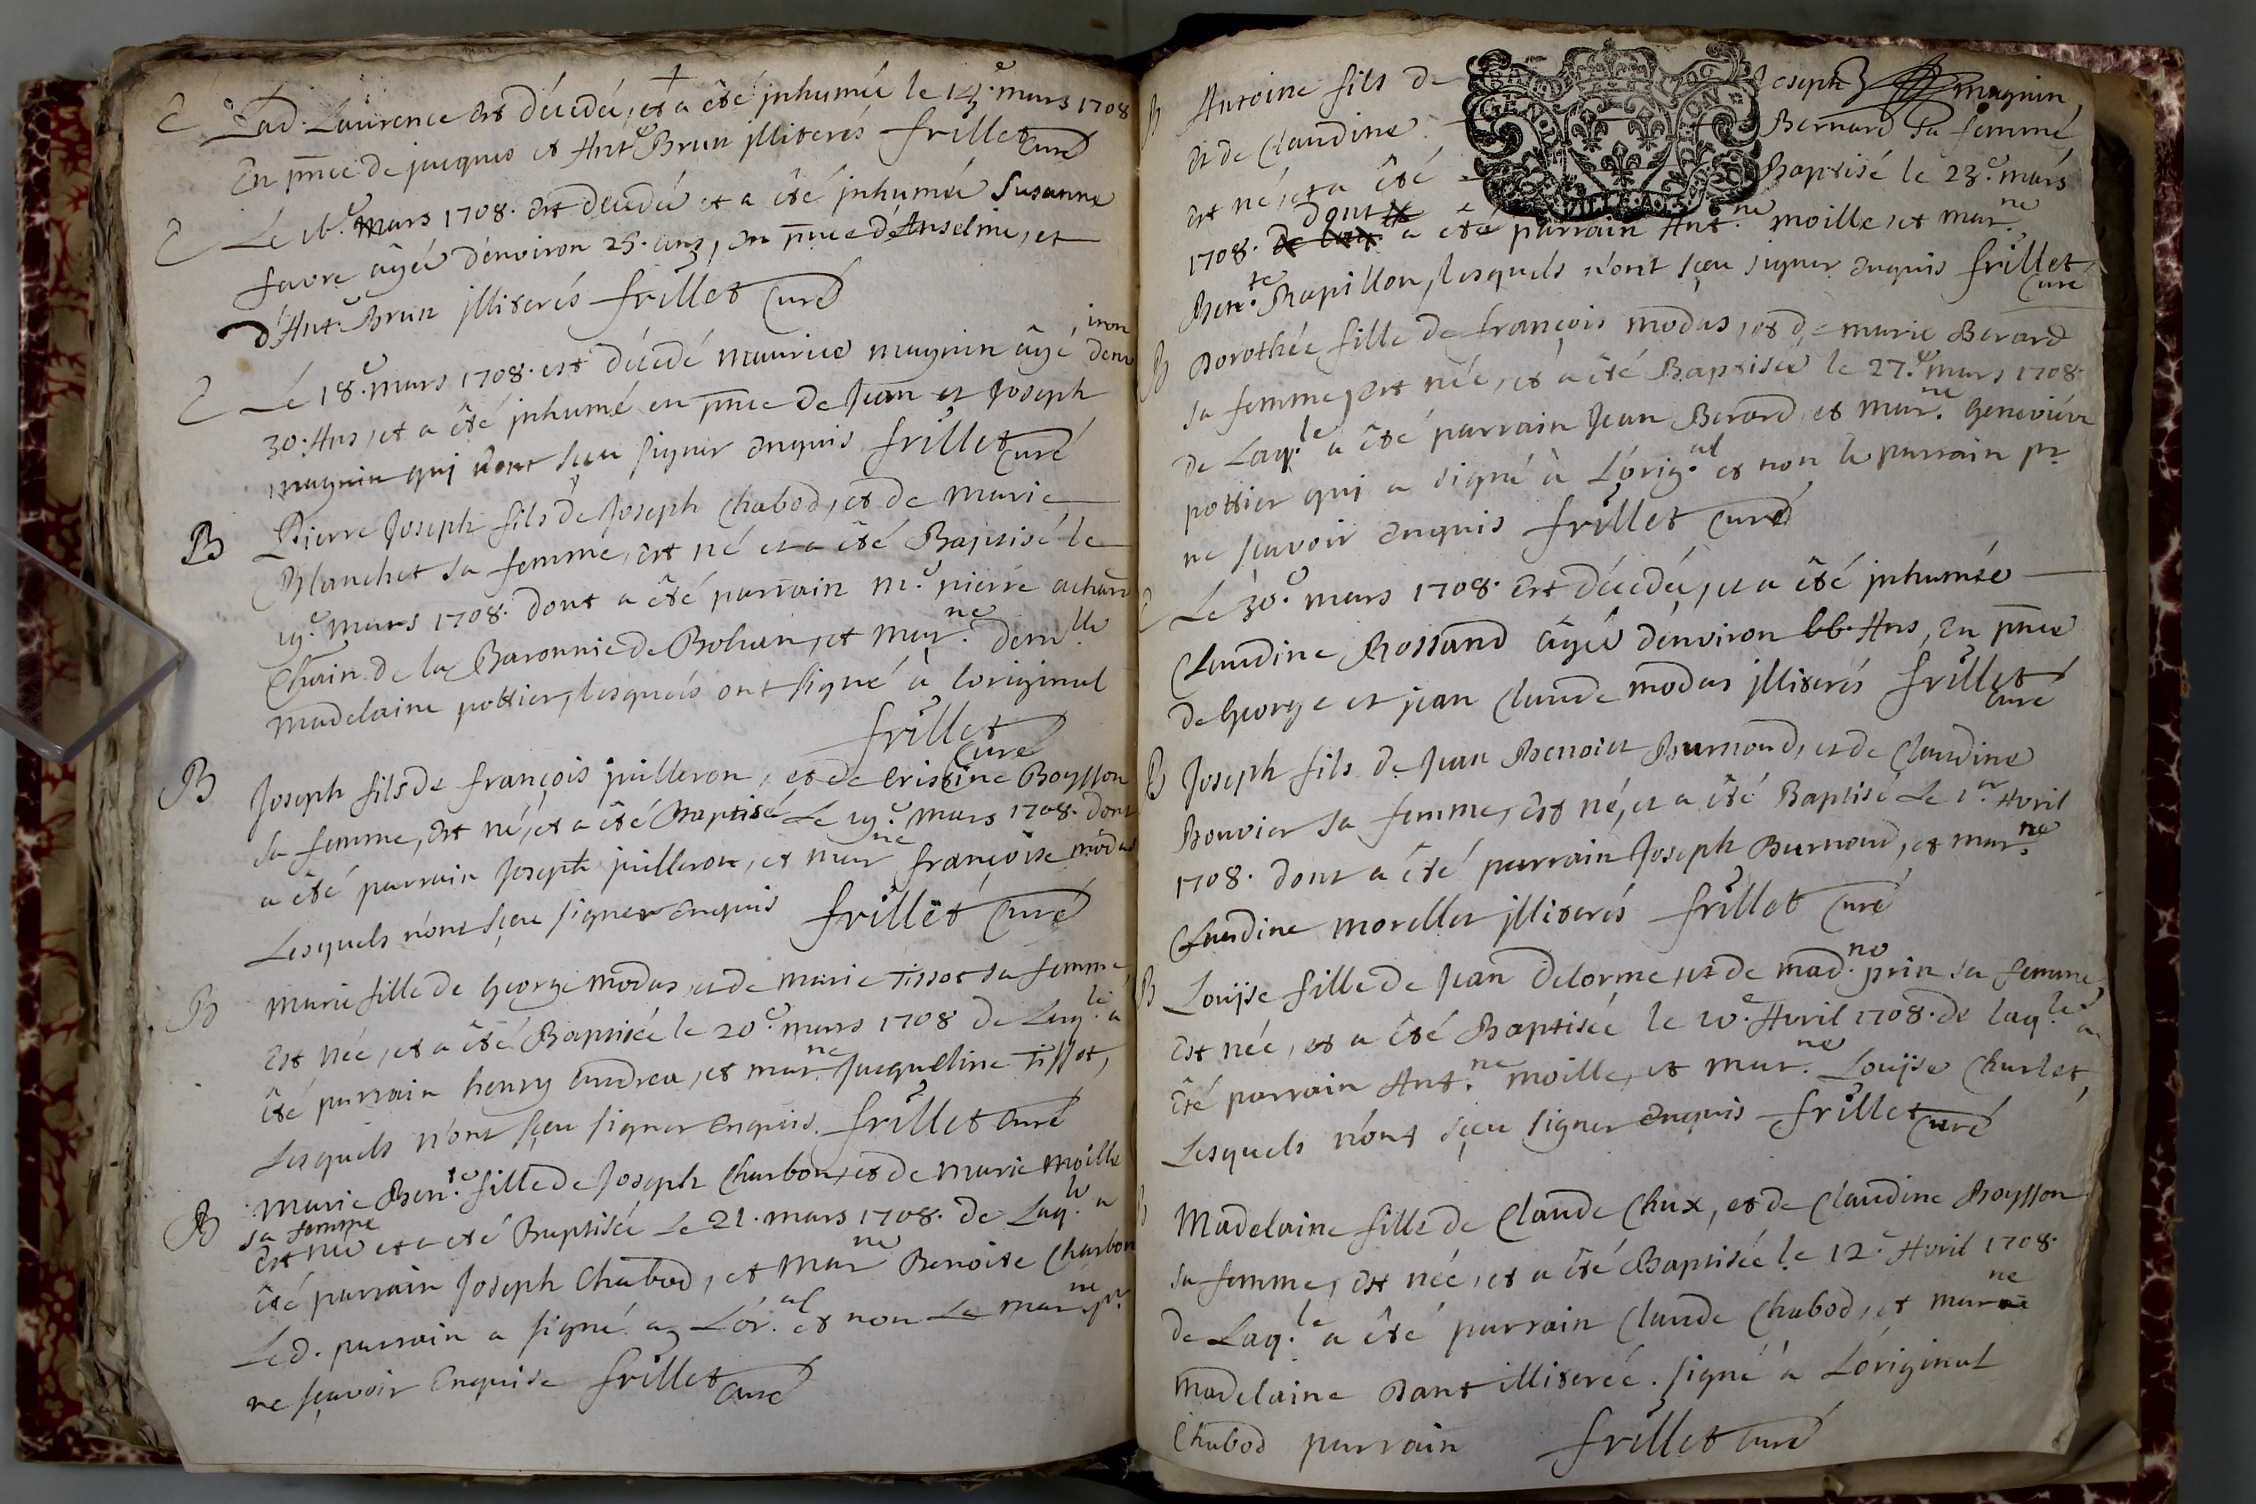 C Lad. Laurence est décedée, et a été jnhumée le 14.e mars 1708
En pñce de jacques et Ant.e Brun jlliterés frillet Curé
C Le 16.e mars 1708. est decedée et a été jnhumée Susanne
favre âgée d'environ 25. ans, en pñce d'Anselme, et
d'Ant.e Brun jlliterés frillet Curé
C Le 18.e mars 1708. est décedé maurice magnin âgé d'environ
30. Ans, et a été jnhumé en pñce de Jean et Joseph
magnin qui n'ont sçeu signer enquis frillet Curé
B Pierre Joseph fils de Joseph Chabod, et de Marie
Blanchet sa femme, est né et a été Baptisé le
19.e mars 1708. dont a été parrain m.e pierre
Chain de la Baronnie de Bohan, et mar.ne dem.lle
madelaine pottier, lesquels ont signé à l'original
frillet Curé
B Joseph fils de françois juilleron, et de Cristine Boysson
sa femme, est né, et a été Baptisé Le 19.e mars 1708. dont
a été parrain Joseph juilleron, et mar.ne françoise modas
Lesquels n'ont sçeu signer enquis frillet Curé
B Marie fille de George modas et de marie Tissot sa femme
est née, et a été Baptisée le 20.e mars 1708 de Laq.le a
été parrain henry Andrea, et mar.ne Jacqueline Tissot,
Lesquels n'ont sçeu signer enquis. frillet Curé
B Marie Ben.te fille de Joseph Charbon, et de Marie Moille
sa femme
Est née et a été Baptisée Le 21. mars 1708. de Laq.le a
été parrain Joseph Chabod, et mar.ne Benoite Charbon
Led. parrain a signé a L'or.al et non La mar.ne pr.
ne sçavoir Enquise frillet Curé
B Antoine fils de Joseph magnin,
et de Claudine Bernard sa femme
est né, et a été Baptisé le 23.e mars
1708. dont a été parrain Ant.ne moille, et mar.ne
Ben.te Rapillon, lesquels n'ont sçeu signer enquis frillet
Curé
B Dorothée fille de françois modas, et de marie Berard
sa femme, est née, et a été Baptisée le 27.e mars 1708.
de Laq.le a été parrain Jean Berard, et mar.ne Geneviéve
pottier qui a signé à L'orig.al et non le parrain pr.
ne sçavoir enquis frillet Curé
C Le 30.e mars 1708. est décedée, et a été jnhumée
Claudine Rossand âgée d'environ 66. Ans, en pñce
de George et jean Claude modas jlliterés frillet
Curé
B Joseph fils de Jean Benoist Burnoud, et de Claudine
Bouvier sa femme, est né, et a été Baptisé Le 1.er Avril
1708. dont a été parrain Joseph Burnoud, et mar.ne
Claudine morellet jlliterés frillet Curé
B Louïse fille de Jean delorme, et de mad.ne prin sa femme,
Est née, et a été Baptisée le 10.e Avril 1708. de laq.le a
été parrain Ant.ne moille, et mar.ne Louïse Charlet,
Lesquels n'ont sçeu signer enquis frillet Curé
B Madelaine fille de Claude Chux, et de Claudine Boysson
sa femme, est née, et a été Baptisée le 12.e Avril 1708.
de Laq.le a été parrain Claude Chabod, et marne
Madelaine Dant illiterée. signé à L'original
Chabod parrain frillet Curé